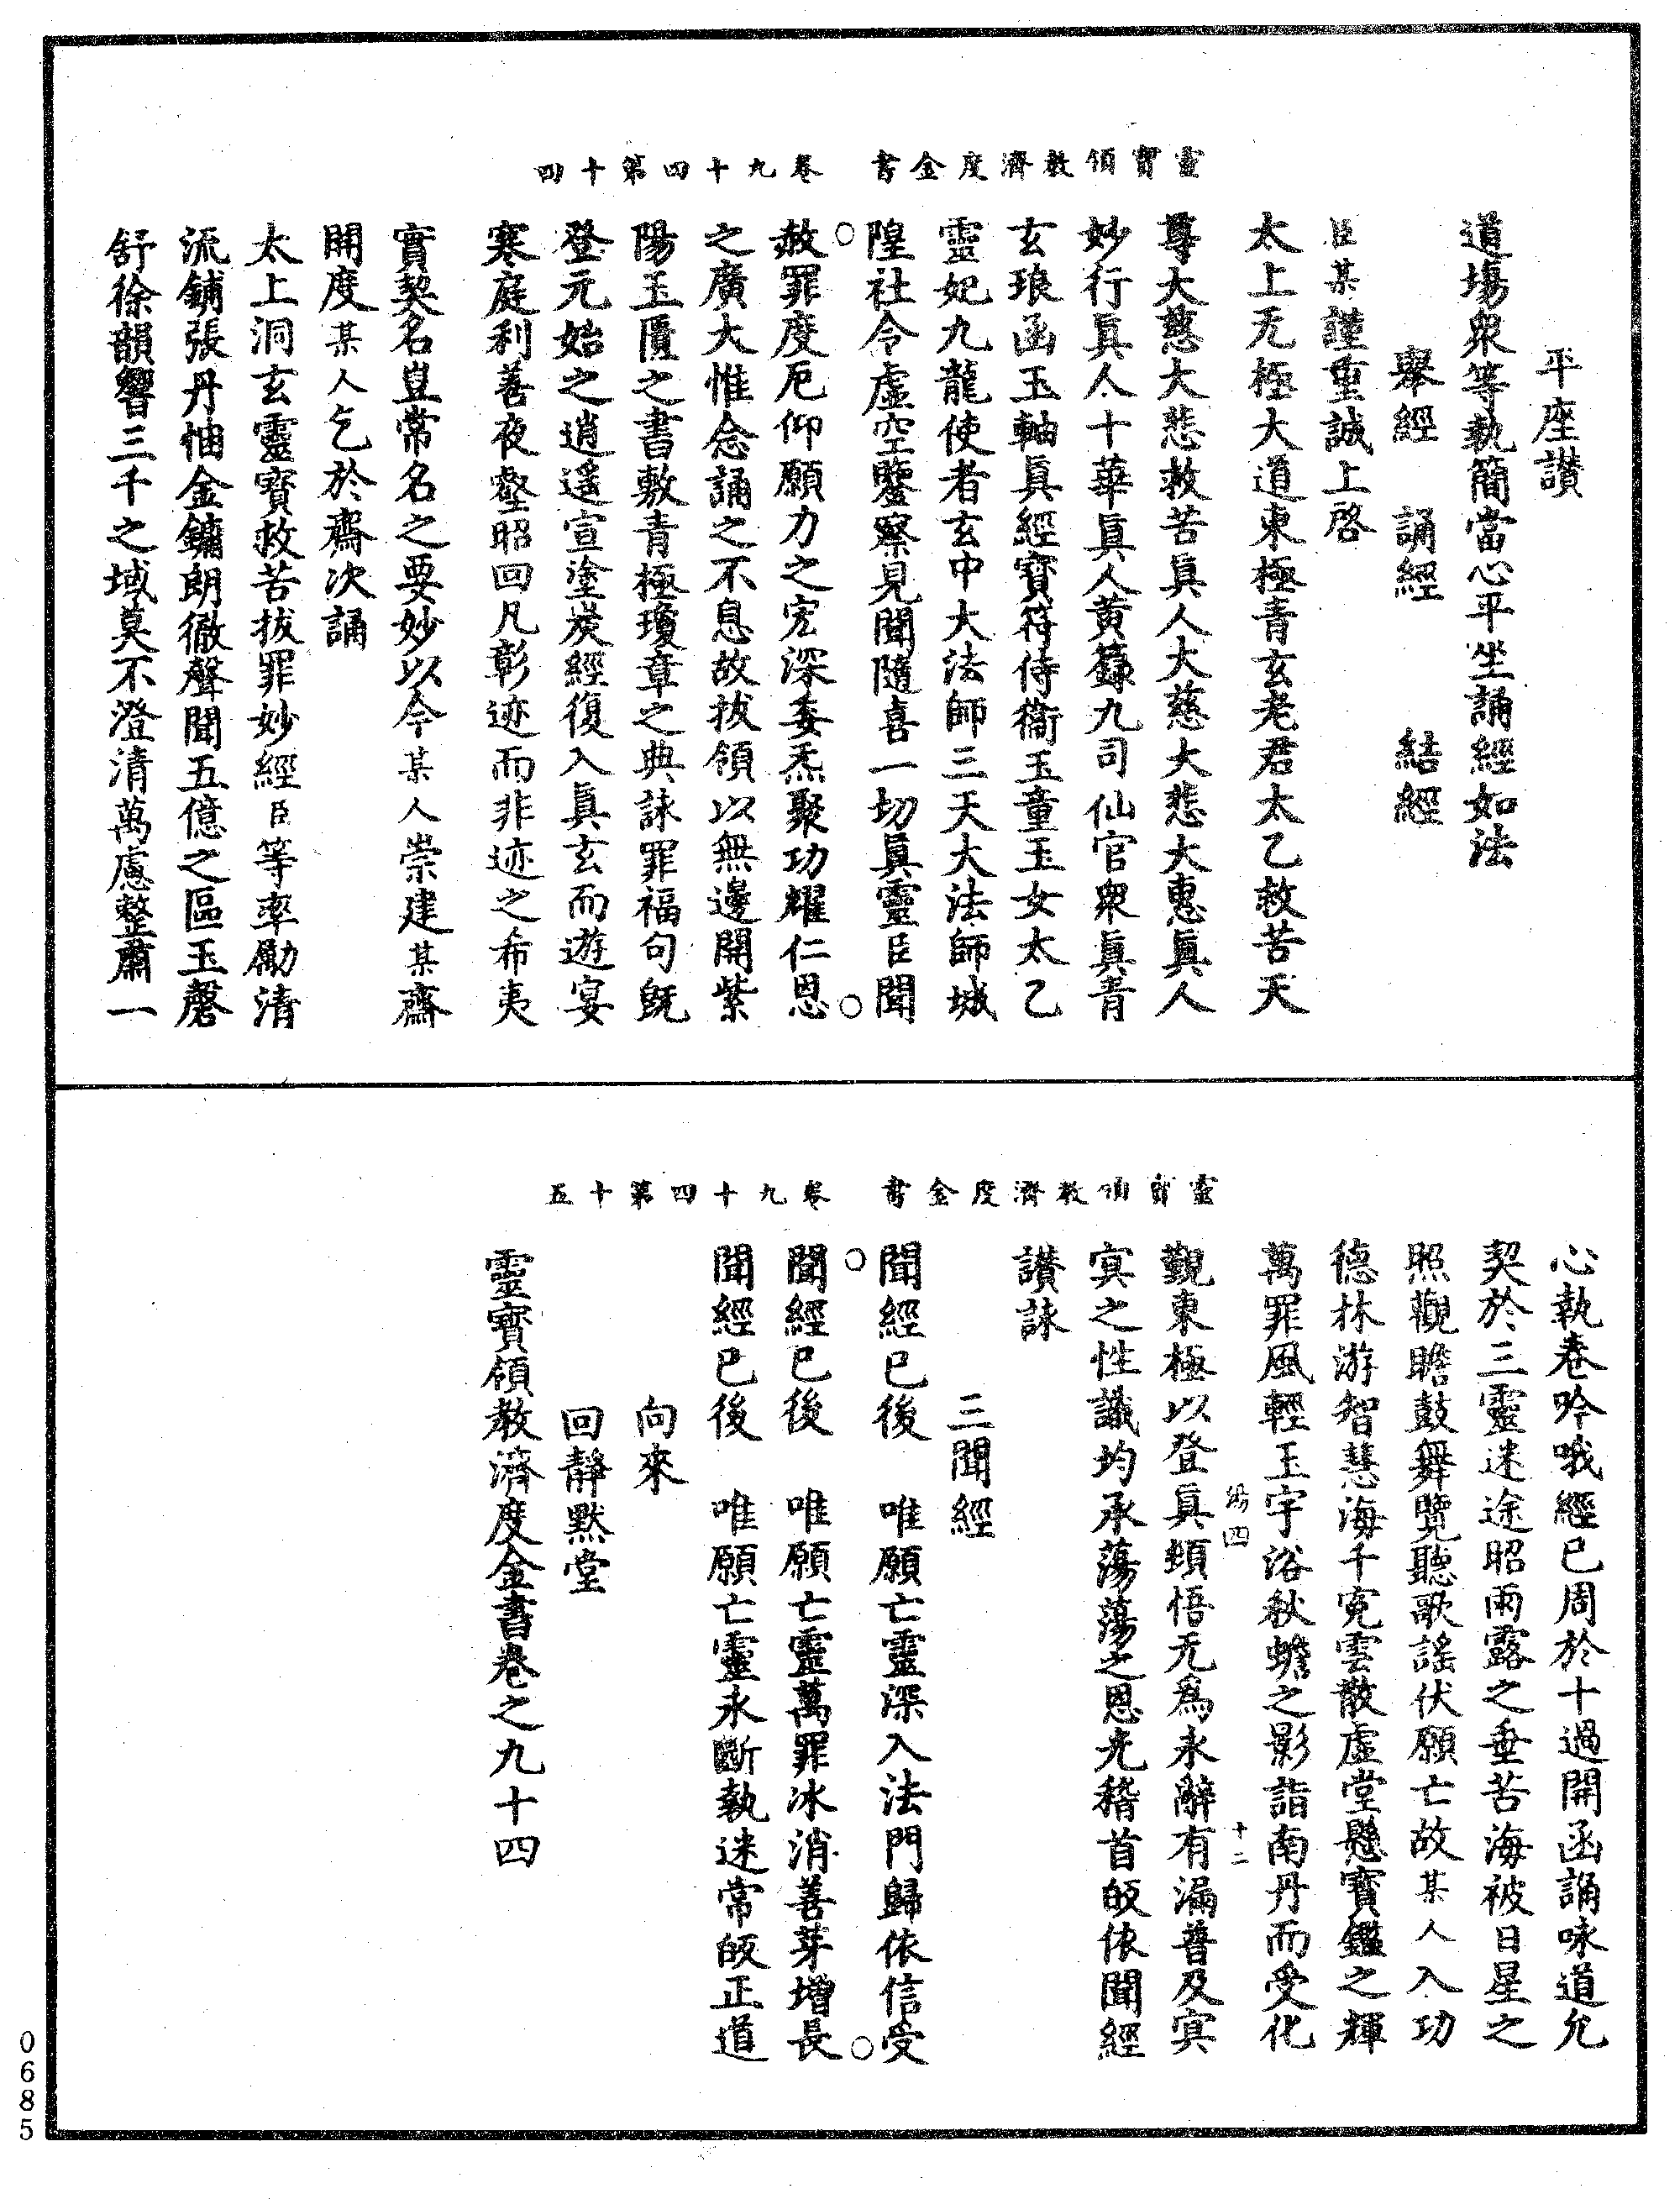 靈寶領教濟度金書　卷九十四第十四
平座讃
道場衆等執簡當心平坐誦經如法
舉經　誦經　　結經
臣某謹重誠上啓
太上无極大道東極青玄老君太乙救苦天
尊大慈大悲救苦眞人大慈大悲大惠眞人
妙行眞人十華眞人黄籙九司仙官衆眞青
玄琅函玉軸眞經寳符侍衛玉童玉女太乙
靈妃九龍使者玄中大法師三天大法師城
隍社令虛空鑒察見聞隨喜一切眞靈臣聞
○　○
赦罪度厄仰願力之宏深委炁聚功耀仁恩
之廣大惟念誦之不息故拔領以無邊開紫
陽玉匱之書敷青極瓊章之典詠罪福句旣
登元始之逍遥宣塗炭經復入眞玄而遊宴
寒庭利善夜壑昭回凡彰迹而非迹之希夷
實契名豈常名之要妙以今某人崇建某齋
開度某人乞於齋次誦
太上洞玄靈寳救苦拔罪妙經臣等率勵清
流鋪張丹怞金鏞朗徹聲聞五億之區玉磬
舒徐韻響三千之域莫不澄清萬慮整肅一
靈寶領教濟度金書　卷九十四第十五
心執卷吟哦經已周於十過開函誦咏道允
契於三靈迷途昭雨露之垂苦海被日星之
照觀瞻鼓舞覽聽歌謡伏願亡故某人入功
德林游智慧海千寃雲散虛堂懸寳鑑之輝
萬罪風輕玉宇浴秋蟾之影詣南丹而受化
鍚四　十二
觐東極以登眞頓悟无爲永辭有漏普及㝠
㝠之性識均承蕩蕩之恩光稽首皈依聞經
讃詠
三聞經
聞經已後　唯願亡靈深入法門歸依信受
○　○
聞經已後　唯願亡靈萬罪冰消善芽增長
聞經已後　唯願亡靈永斷執迷常皈正道
向來
回靜默堂
靈寶領教濟度金書卷之九十四
0685